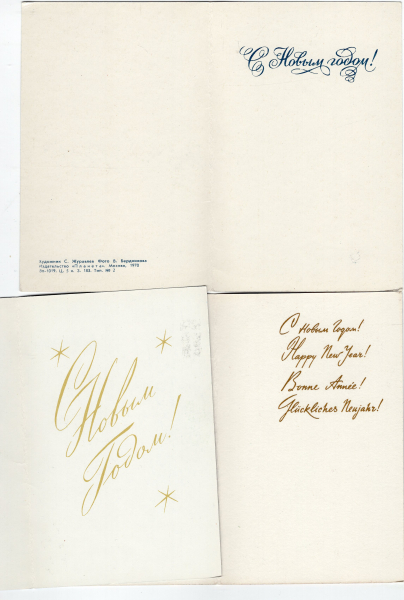 С Новым годом!
Художник С. Журавлев Фото В. Бердникова
Издательство «Планета», Москва, 1975
С Новым
Годом!
С Новым Годом!
Happy New Year!
Bonne Année!
Glückliches Neujahr!